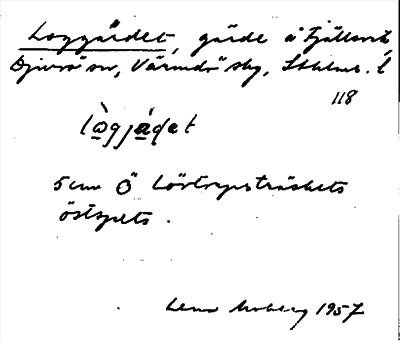 Loggärdet, gärde å Fjällsvik
Djurö sn, Värmdö skg, Sthlms. l
118
lògjáḍet
5 cm Ö Lövtrysträskets
östspets.
Lena Moberg 1957